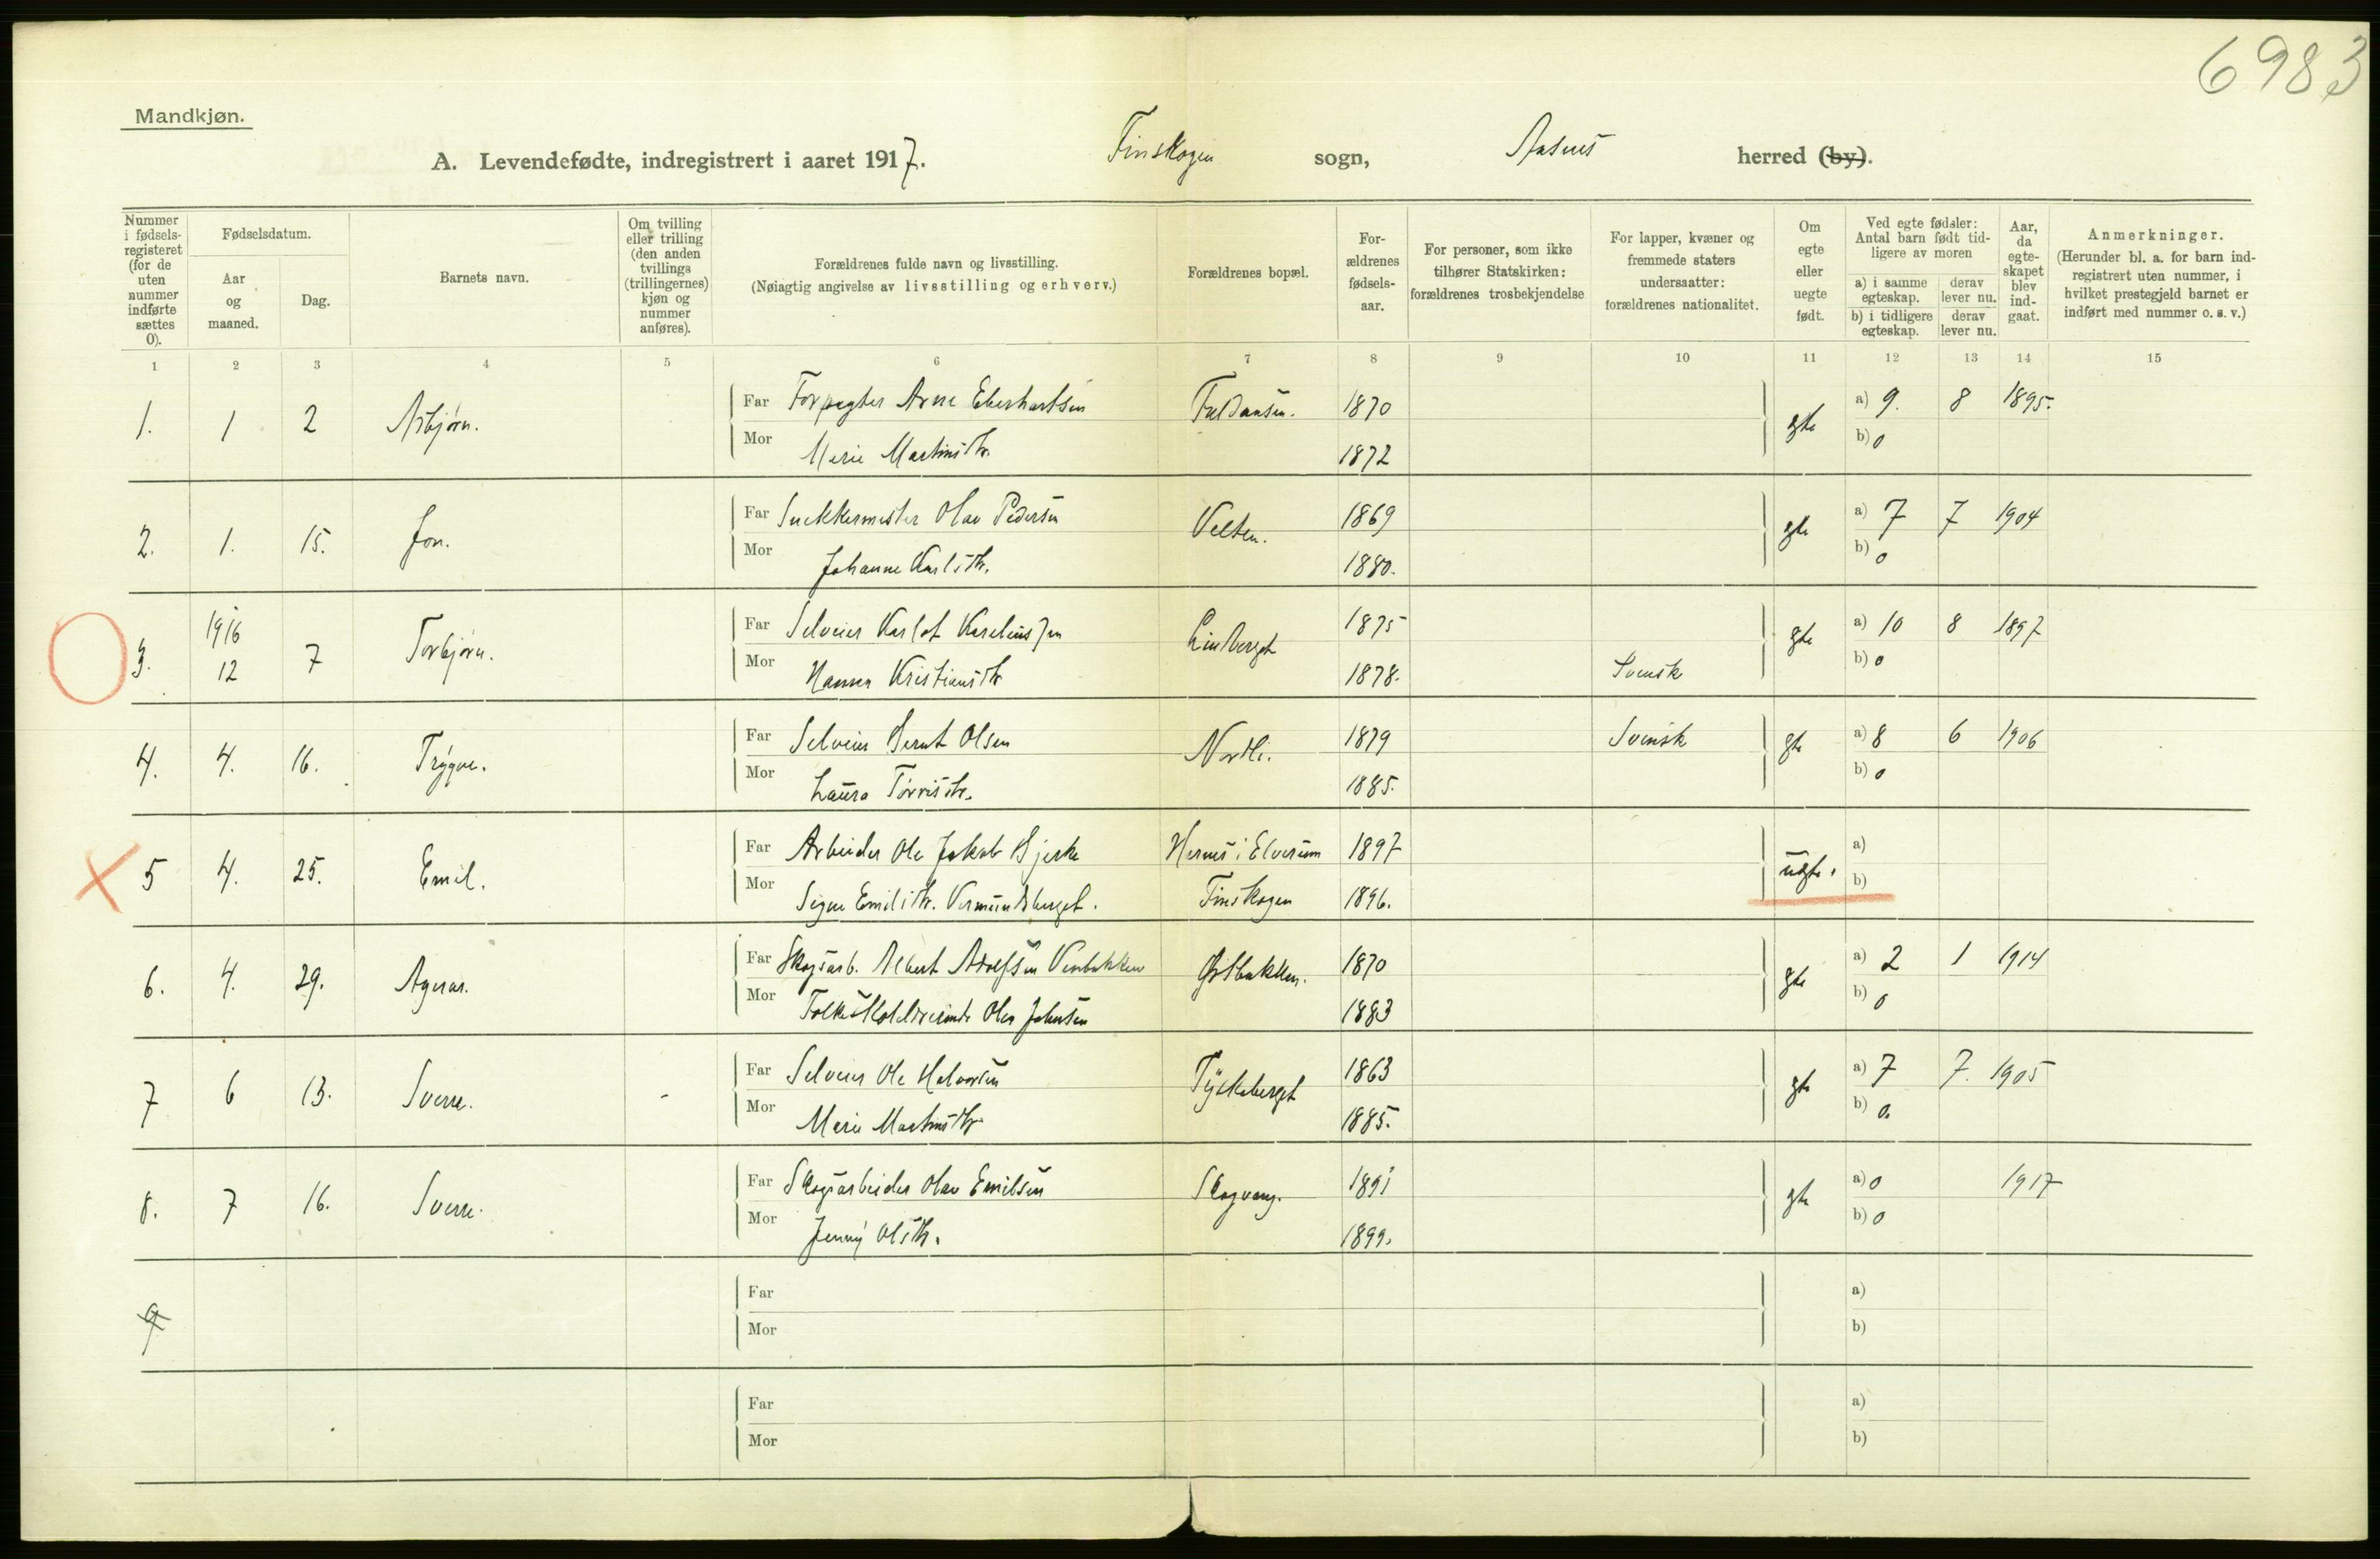 6983
Mandkjøn.
A. Levendefødte, indregistrert i aaret 1917. Finskogen sogn, Aasnes herred (by).
Nummer i fødsels-registeret (for de uten nummer indførte sættes 0).
Fødselsdatum.
Aar og maaned.
Dag.
Barnets navn.
Om tvilling eller trilling (den anden tvillings (trillingernes) kjøn og nummer anføres).
Forældrenes fulde navn og livsstilling.
(Nøiagtig angivelse av livsstilling og erhverv.)
Forældrenes bopæl.
For-ældrenes fødsels-aar.
For personer, som ikke tilhører Statskirken: forældrenes trosbekjendelse
For lapper, kvæner og fremmede staters undersaatter: forældrenes nationalitet.
Om egte eller uegte født.
Ved egte fødsler: Antal barn født tid-ligere av moren
a) i samme egteskap.
derav lever nu.
b) i tidligere egteskap.
derav lever nu.
Aar, da egte-skapet blev ind-gaat.
Anmerkninger.
(Herunder bl. a. for barn ind-registrert uten nummer, i hvilket prestegjeld barnet er indført med nummer o. s. v.)
1 2 3 4 5 6 7 8 9 10 11 12 13 14 15
1. 1 2 Asbjørn. Far Forpagter Arne Eberhartsen 1870 egte a) 9. 8 1895.
Mor Marie Martinsdtr. 1872 b) 0
2. 1. 15. Jon. Far Snekkermester Olav Pedersen Velten. 1869 egte a) 7 7 1904
Mor Johanne Karlsdtr. 1880. b) 0
3. 1916 12 7 Torbjørn. Far Selveier Karlot Kareliussen Lindberget 1875 egte a) 10 8 1897
Mor Hanna Kristiansdtr 1878. Svensk b) 0
4. 4. 16. Trygve. Far Selveier Bernt Olsen Nordli. 1879 Svensk egte a) 8 6 1906
Mor Laura 1885. b) 0
5 4. 25. Emil. Far Arbeider Ole Jakob Bjerke Hernes i Elverum 1897 uegte. a)
Mor Signe Emilsdtr. Vermundsberget. Finskogen 1896. b)
6. 4. 29. Agnar. Far Skogsarb. Albert Adolfsen 1870 egte a) 2 1 1914
Mor Johnsen 1883 b) 0
7 6 13. Sverre. - Far Selveier Ole Halvorsen Tyskeberget 1863 egte a) 7 7. 1905
Mor Marie Martinsdtr. 1885. b) 0.
8. 7 16. Sverre. Far Skogsarbeider Olav Emilsen Skogvang. 1891 egte a) 0 1917
Mor Jenny Olsdtr. 1899. b) 0
9 Far a)
Mor b)
Far a)
Mor b)